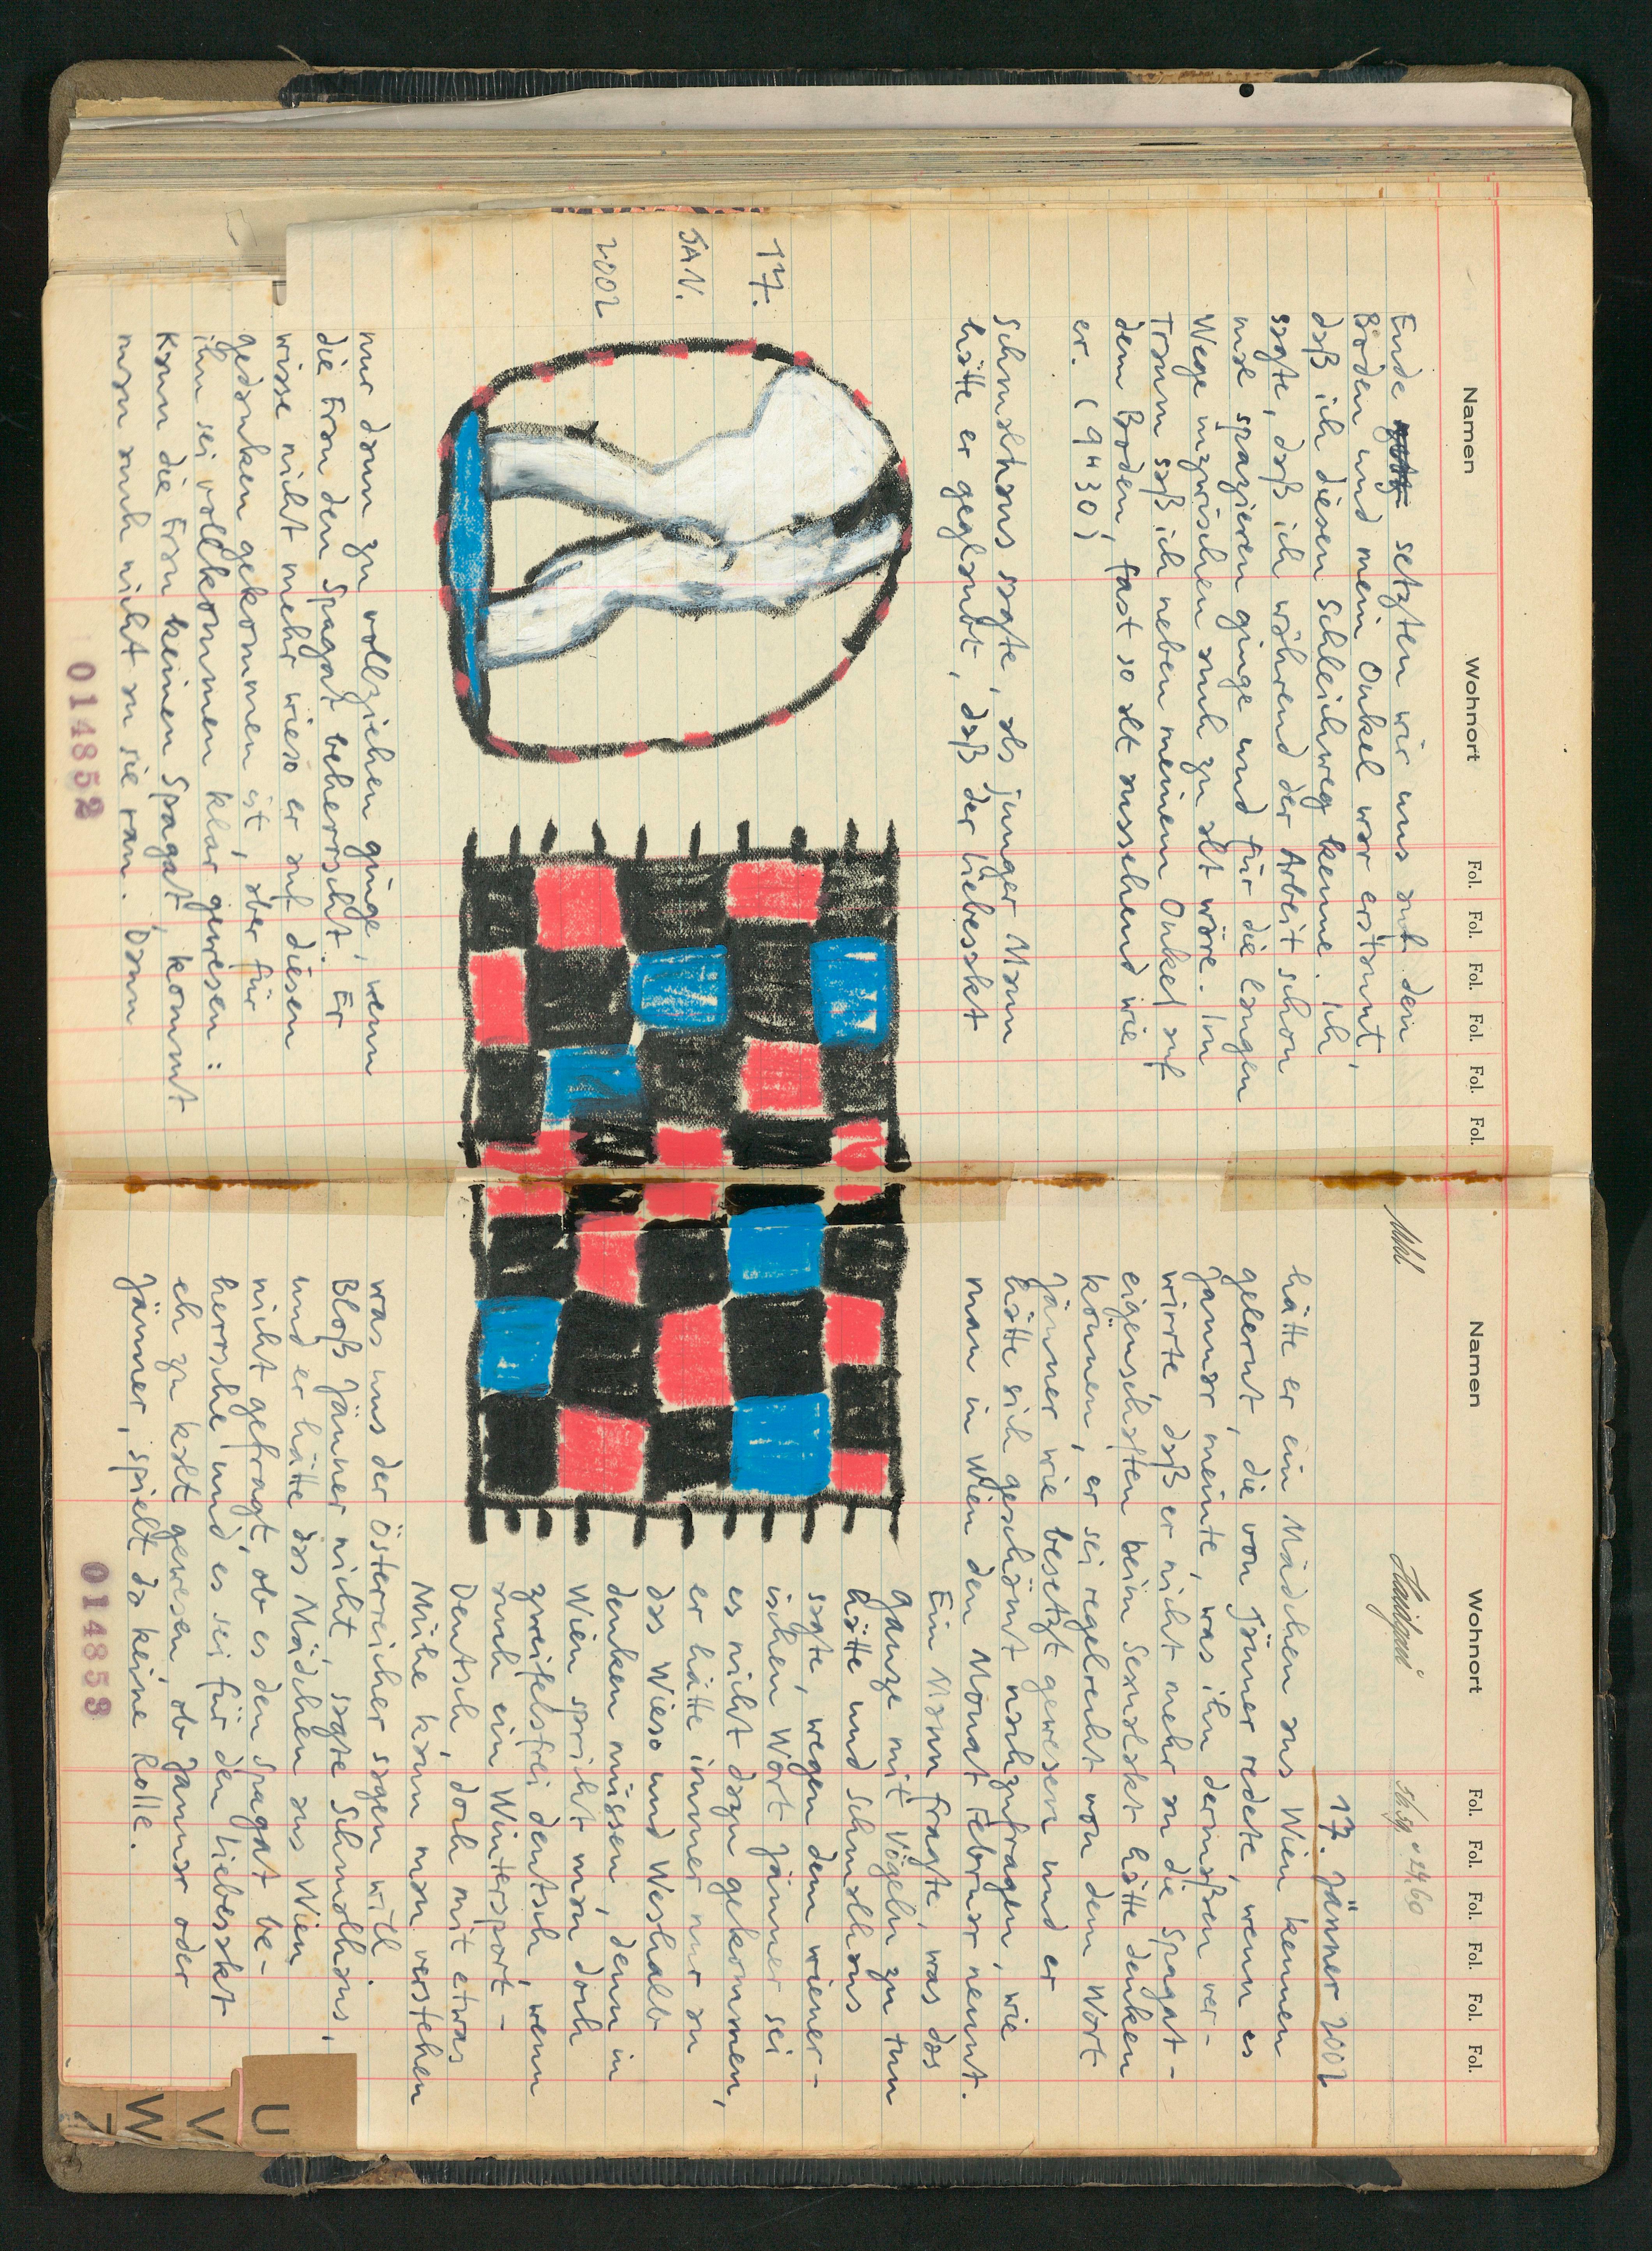 Namen Wohnort Fol. Fol. Fol. Fol. Fol. Fol.
Ende setzten wir uns auf den
Boden und mein Onkel war erstaunt,
daß ich diesen Schleichweg kenne. Ich
sagte, daß ich während der Arbeit schon
mal spazieren ginge und für die langen
Wege inzwischen auch zu alt wäre. Im
Traum saß ich neben meinem Onkel auf
dem Boden, fast so alt aussehend wie
er. (9H30)
Schmalhans sagte, als junger Mann
hätte er geglaubt, daß der Liebesakt
17.
JAN.
2002
nur dann zu vollziehen ginge, wenn
die Frau den Spagat beherrscht. Er
wisse nicht mehr wieso er auf diesen
gedanken gekommen ist, aber für
ihn sei vollkommen klar gewesen:
Kann die Frau keinen Spagat, kommt
man auch nicht an sie ran. Dann
014852
Namen Wohnort Fol. Fol. Fol. Fol. Fol. Fol.
17. Jänner 2002
hätte er ein Mädchen aus Wien kennen
gelernt, die von Jänner redete, wenn es
Januar meinte, was ihn dermaßen ver-
wirrte, daß er nicht mehr an die Spagat-
eigenschaften beim Sexualakt hätte denken
können, er sei regelrecht von dem Wort
Jänner wie besetzt gewesen und er
hätte sich geschämt nachzufragen, wie
man in Wien den Monat Februar nennt.
Ein Mann fragte, was das
Ganze mit Vögeln zu tun
hätte und Schmalhans
sagte, wegen dem wiener-
ischen Wort Jänner sei
es nicht dazu gekommen,
er hätte immer nur an
das Wieso und Weshalb
denken müssen, denn in
Wien spricht man doch
zweifelsfrei deutsch, wenn
auch ein Wintersport-
Deutsch, doch mit etwas
Mühe kann man verstehen
was uns der Österreicher sagen will.
Bloß Jänner nicht, sagte Schmalhans,
und er hätte das Mädchen aus Wien
nicht gefragt, ob es den Spagat be-
herrsche und es sei für den Liebesakt
eh zu kalt gewesen, ob Januar oder
Jänner, spielt da keine Rolle.
014853
U
V
W
Z